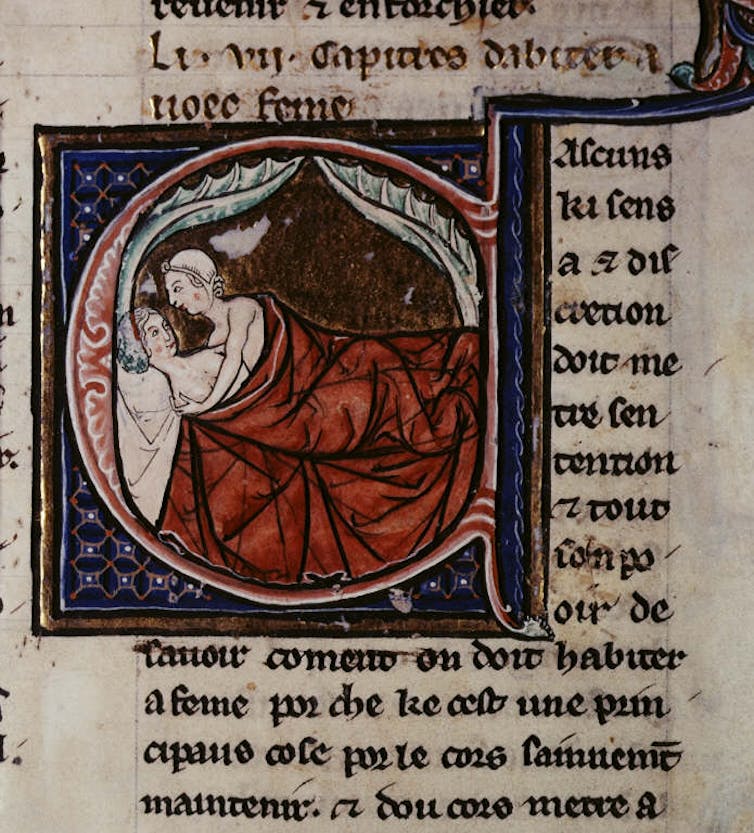 reuenir ⁊ enforchier.
Li · vij · Capitres dabiter a
uoec feme
CAscuns
ki sens
a ⁊ dis
cretion
doit me
tre sen
tention
⁊ tout
son po
oir de
sauoir coment on doit habiter
a feme por che ke cest une prin
cipaus cose por le cors sainnemt̄
maintenir. ⁊ dou cors metre a